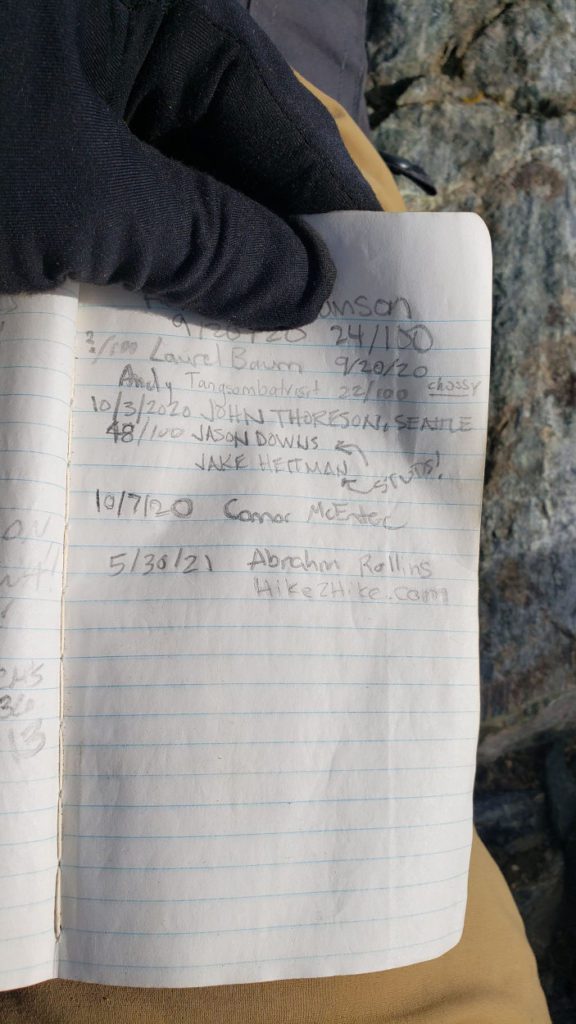 9/20/20 24/100
?/100 Laurel Baum 9/20/20
Andy 22/100 chossy
10/3/2020 JOHN THORESON, SEATTLE
48/100 JASON DOWNS
JAKE HEITMAN STUDS!
10/7/20 Connor McEntee
5/30/21 Abrahm Rollins
Hike2Hike.com
13